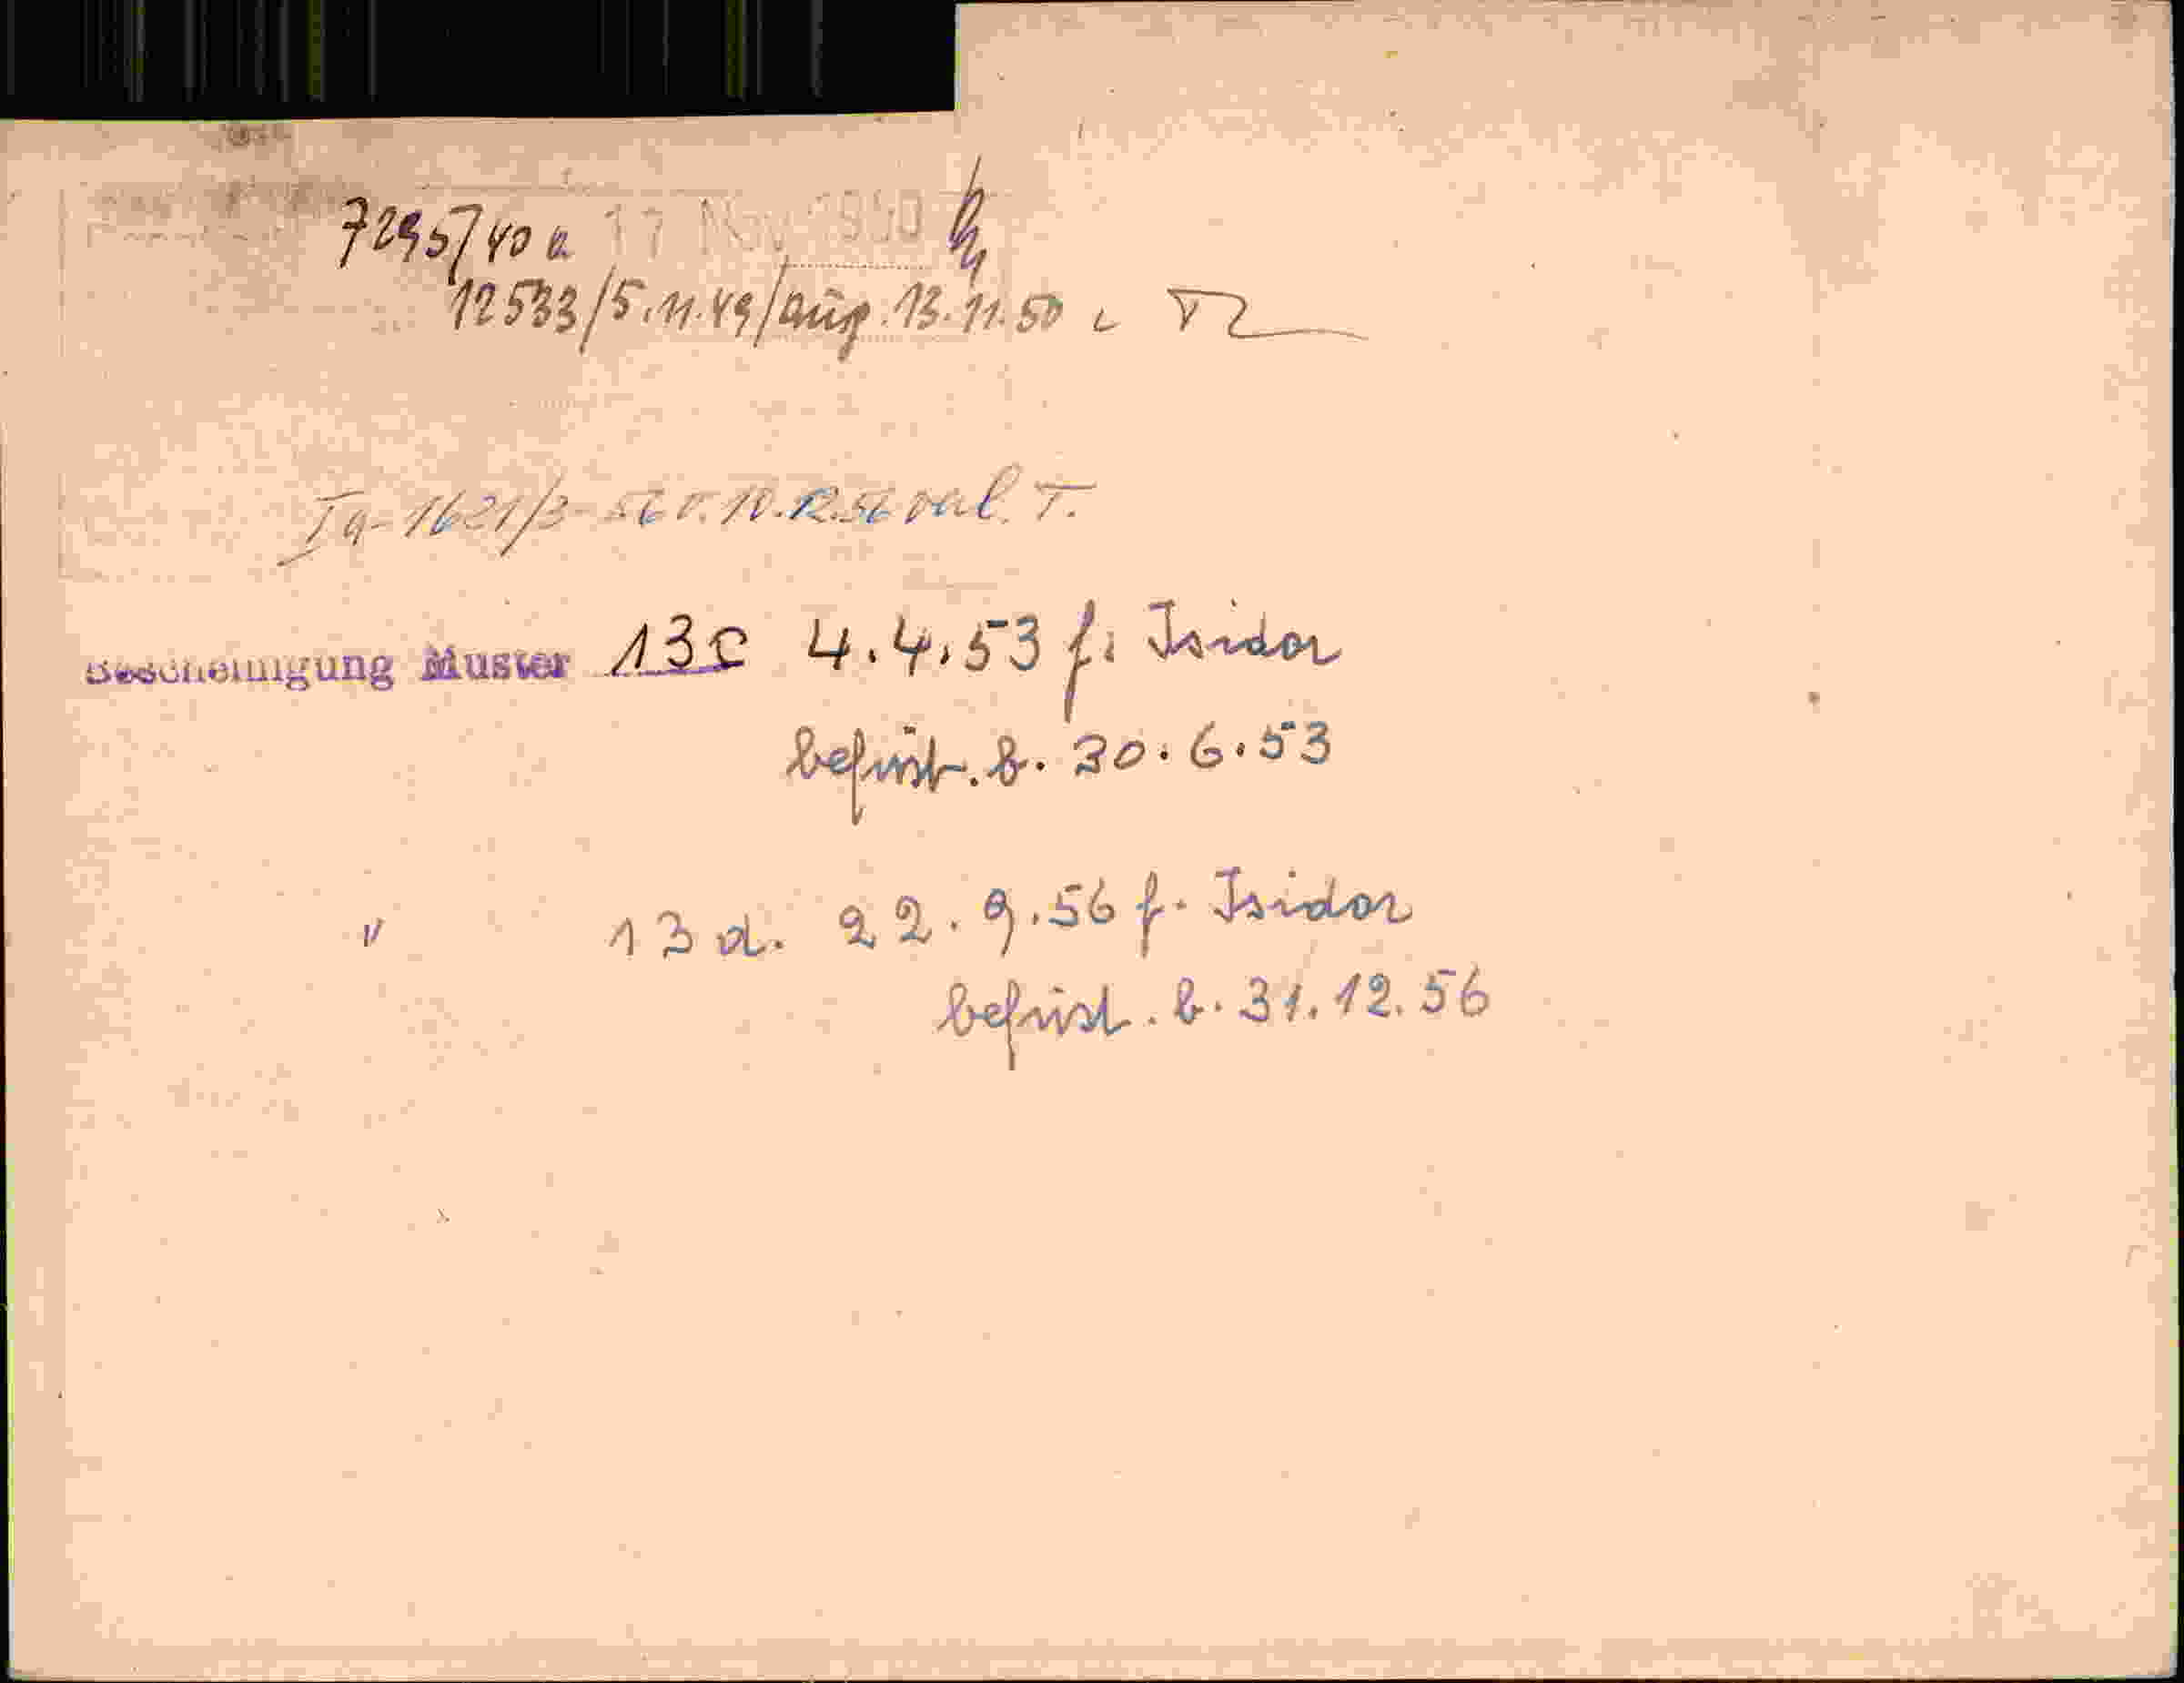 7295/40a 17 Nov 1950
12533/5.11.49/ausg. 13.11.50
Ia-1621/3-56 v. 10.12.56 val. T.
Bescheinigung Muster 13c 4.4.53 f. Isidor
befrist. b. 30.6.53
" 13 d. 22.9.56 f. Isidor
befrist. b. 31.12.56